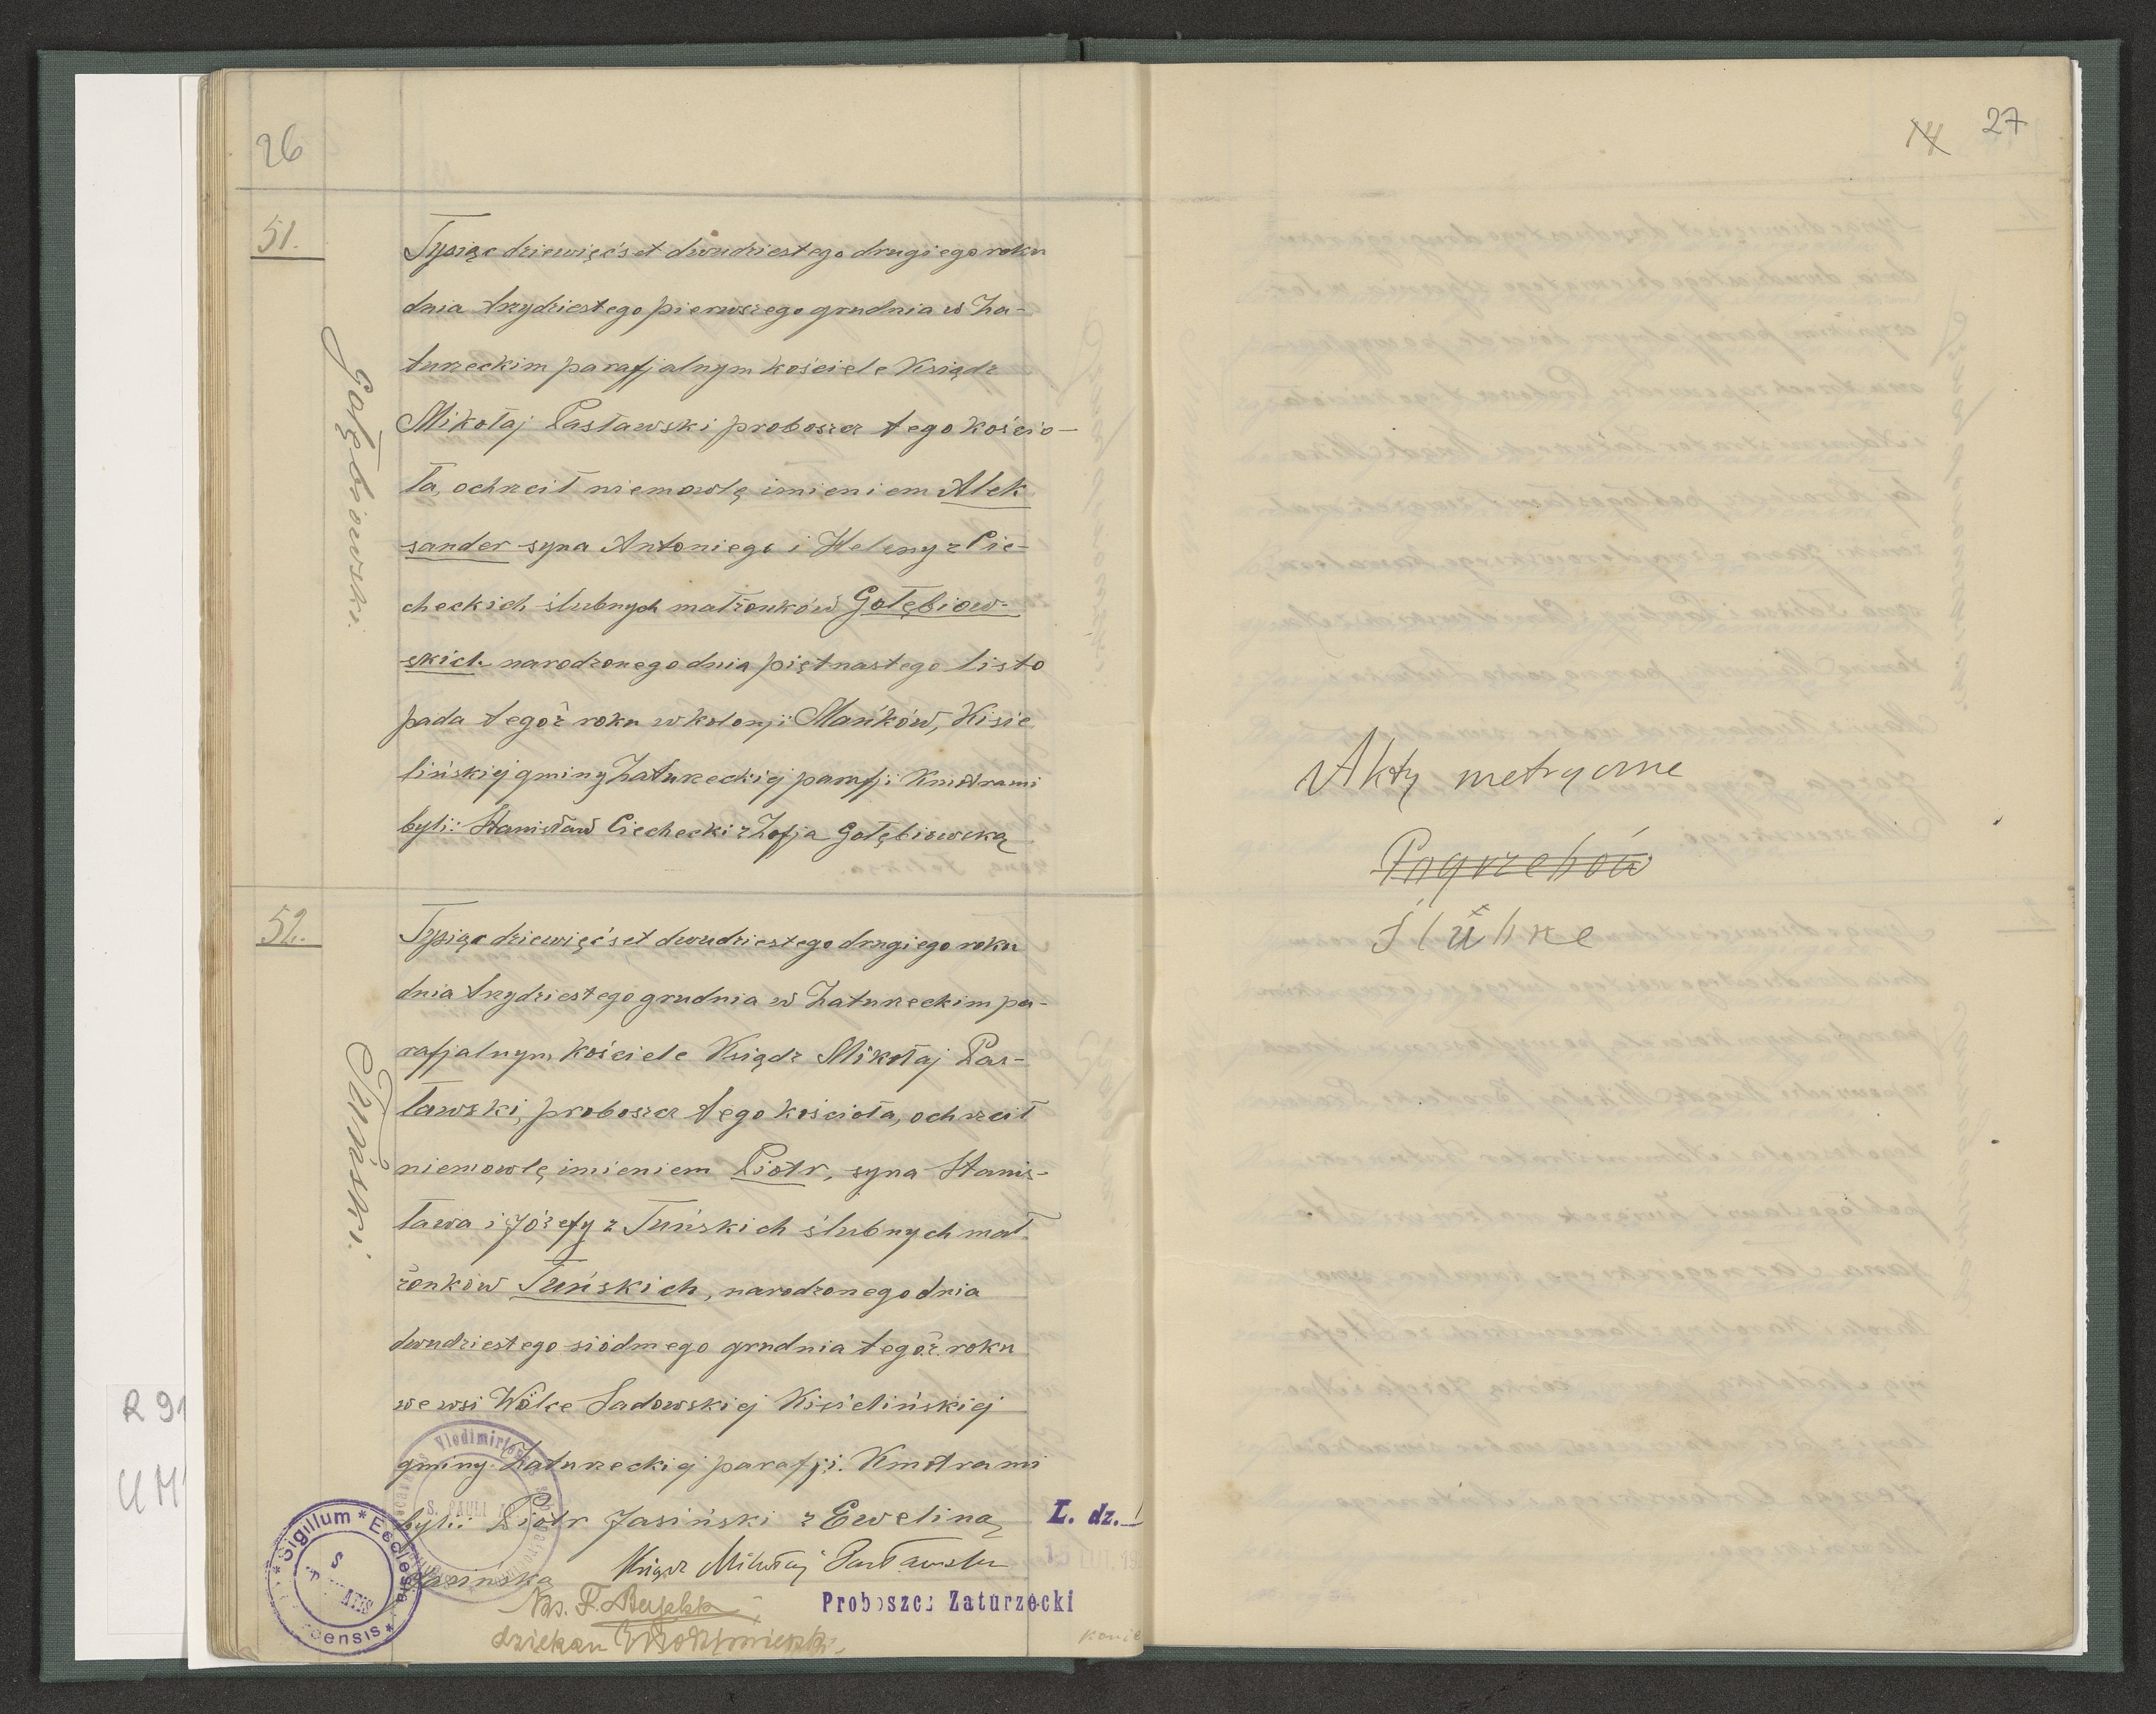 26
51.
Gołębiowski.
Tysiąc dziewięćset dwudziestego drugiego roku
dnia trzydziestego pierwszego grudnia w Za-
turzeckim parafjalnym kościele Ksiądz
Mikołaj Pasławski proboszcz tego kościo-
ła, ochrzcił niemowlę imieniem Alek
sander syna Antoniego i Heleny z Cie-
checkich ślubnych małżonków Gołębiow-
skich narodzonego dnia piętnastego listo
pada tegoż roku w kolonji Mańków, Kisie
lińskiej gminy Zaturzeckiej parafji Kmotrami
byli: Stanisław Ciechecki z Zofją Gołębiowską
52.
Tuński.
Tysiąc dziewięćset dwudziestego drugiego roku
dnia trzydziestego grudnia w Zaturzeckim pa-
rafjalnym kościele Ksiądz Mikołaj Pas-
ławski, proboszcz tego kościoła, ochrzcił
niemowlę imieniem Piotr, syna Stanis-
ława i Józefy z Tuńskich ślubnych mał-
żonków Tuńskich, narodzonego dnia
dwudziestego siódmego grudnia tegoż roku
we wsi Wólce Sadowskiej Kisielińskiej
gminy Zaturzeckiej parafji. Kmotrami
byli: Piotr Jasiński z Eweliną
Jasińską
Ksiądz Mikołaj Pasławski
L. dz.
Proboszcz Zaturzecki
Sigillum * Ecclesiae
S. PAULI AP
Ks. F.
dziekan Włodzimierski
koniec
14 27
Akty metryczne
Pogrzebów
Ślubne
R 91